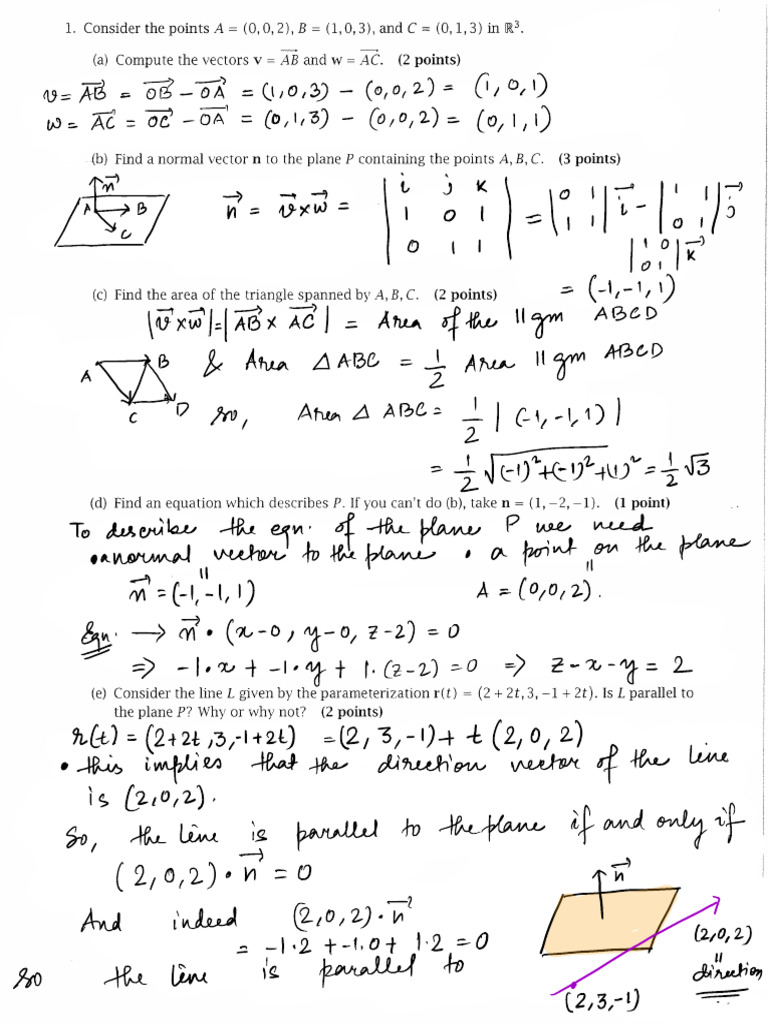 1. Consider the points A = (0, 0, 2), B = (1, 0, 3), and C = (0, 1, 3) in ℝ³.
(a) Compute the vectors v = AB⃗ and w = AC⃗. (2 points)
v = AB⃗ = OB⃗ − OA⃗ = (1,0,3) − (0,0,2) = (1,0,1)
w = AC⃗ = OC⃗ − OA⃗ = (0,1,3) − (0,0,2) = (0,1,1)
(b) Find a normal vector n to the plane P containing the points A, B, C. (3 points)
n⃗ A B C
n⃗ = v⃗×w⃗ = |i j k; 1 0 1; 0 1 1| = |0 1; 1 1| i⃗ − |1 1; 0 1| j⃗
|1 0; 0 1| k⃗
= (-1,-1,1)
(c) Find the area of the triangle spanned by A, B, C. (2 points)
|v⃗×w⃗| = |AB⃗ × AC⃗| = Area of the ||gm ABCD
A B C D
& Area △ABC = 1/2 Area ||gm ABCD
so, Area △ ABC = 1/2 |(-1,-1,1)|
= 1/2 √(-1)²+(-1)²+(1)² = 1/2 √3
(d) Find an equation which describes P. If you can't do (b), take n = (1, −2, −1). (1 point)
To describe the eqn. of the plane P we need
• a normal vector to the plane • a point on the plane
n⃗ = (-1,-1,1) A = (0,0,2).
Eqn. → n⃗ • (x-0, y-0, z-2) = 0
⇒ -1·x + -1·y + 1·(z-2) = 0 ⇒ z-x-y = 2
(e) Consider the line L given by the parameterization r(t) = (2 + 2t, 3, −1 + 2t). Is L parallel to
the plane P? Why or why not? (2 points)
r(t) = (2+2t, 3, -1+2t) = (2, 3, -1) + t (2, 0, 2)
• this implies that the direction vector of the line
is (2,0,2).
So, the line is parallel to the plane if and only if
(2,0,2) • n⃗ = 0
And indeed (2,0,2)·n⃗
= -1·2 + -1·0 + 1·2 = 0
so the line is parallel to
n⃗
(2,0,2)
||
direction
(2,3,-1)